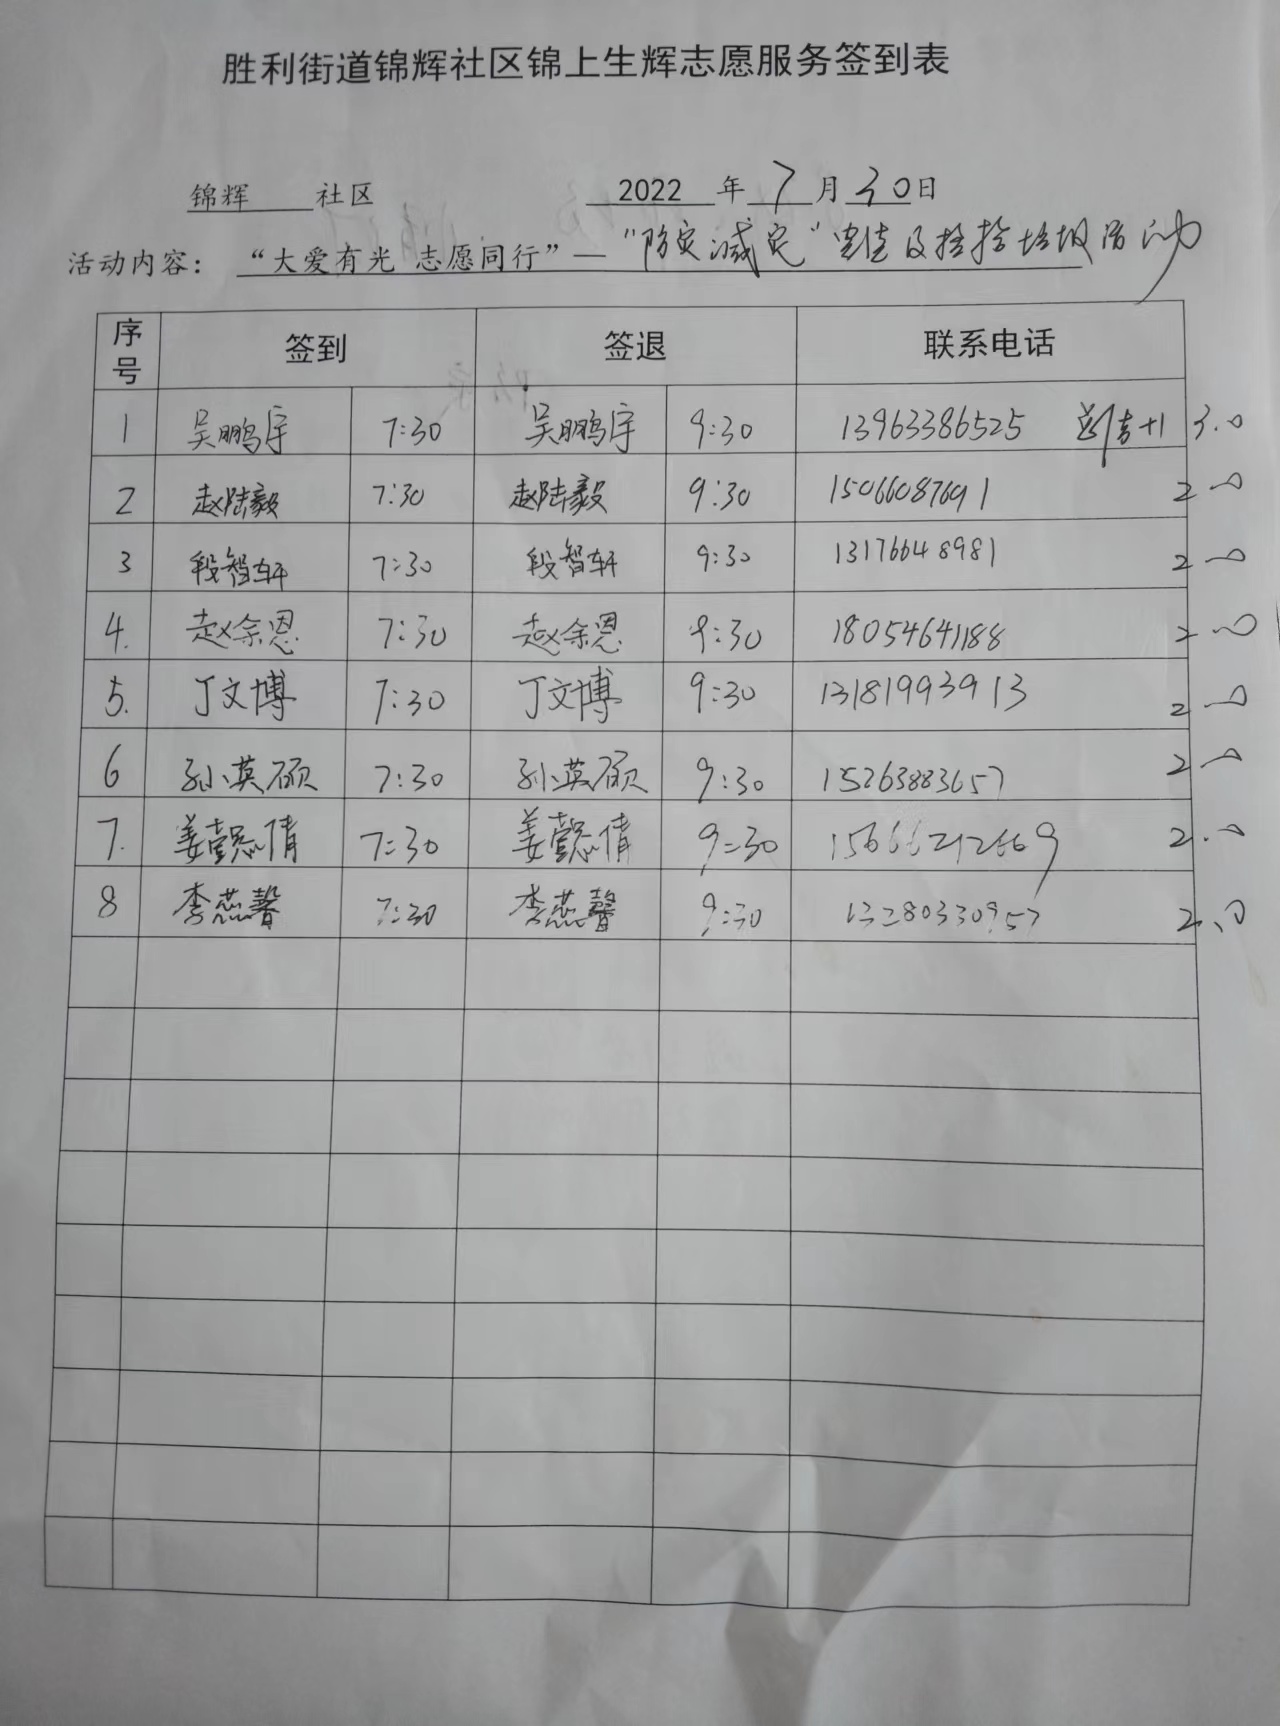 胜利街道锦辉社区锦上生辉志愿服务签到表
锦辉 社区 2022 年 7 月 30 日
活动内容： “大爱有光 志愿同行”— “防灾减灾”宣传及捡拾垃圾活动
序号 签到 签退 联系电话
1 吴鹏宇 7:30 吴鹏宇 9:30 13963386525 +1 3.0
2 赵陆毅 7:30 赵陆毅 9:30 15066087691 2.0
3 段智轩 7:30 段智轩 9:30 13176648981 2.0
4. 赵余恩 7:30 赵余恩 9:30 18054641188 2.0
5. 丁文博 7:30 丁文博 9:30 13181993913 2.0
6 孙英硕 7:30 孙英硕 9:30 15263883657 2.0
7. 姜懿倩 7:30 姜懿倩 9:30 15666212669 2.0
8 李燕馨 7:30 李燕馨 9:30 13280330957 2.0